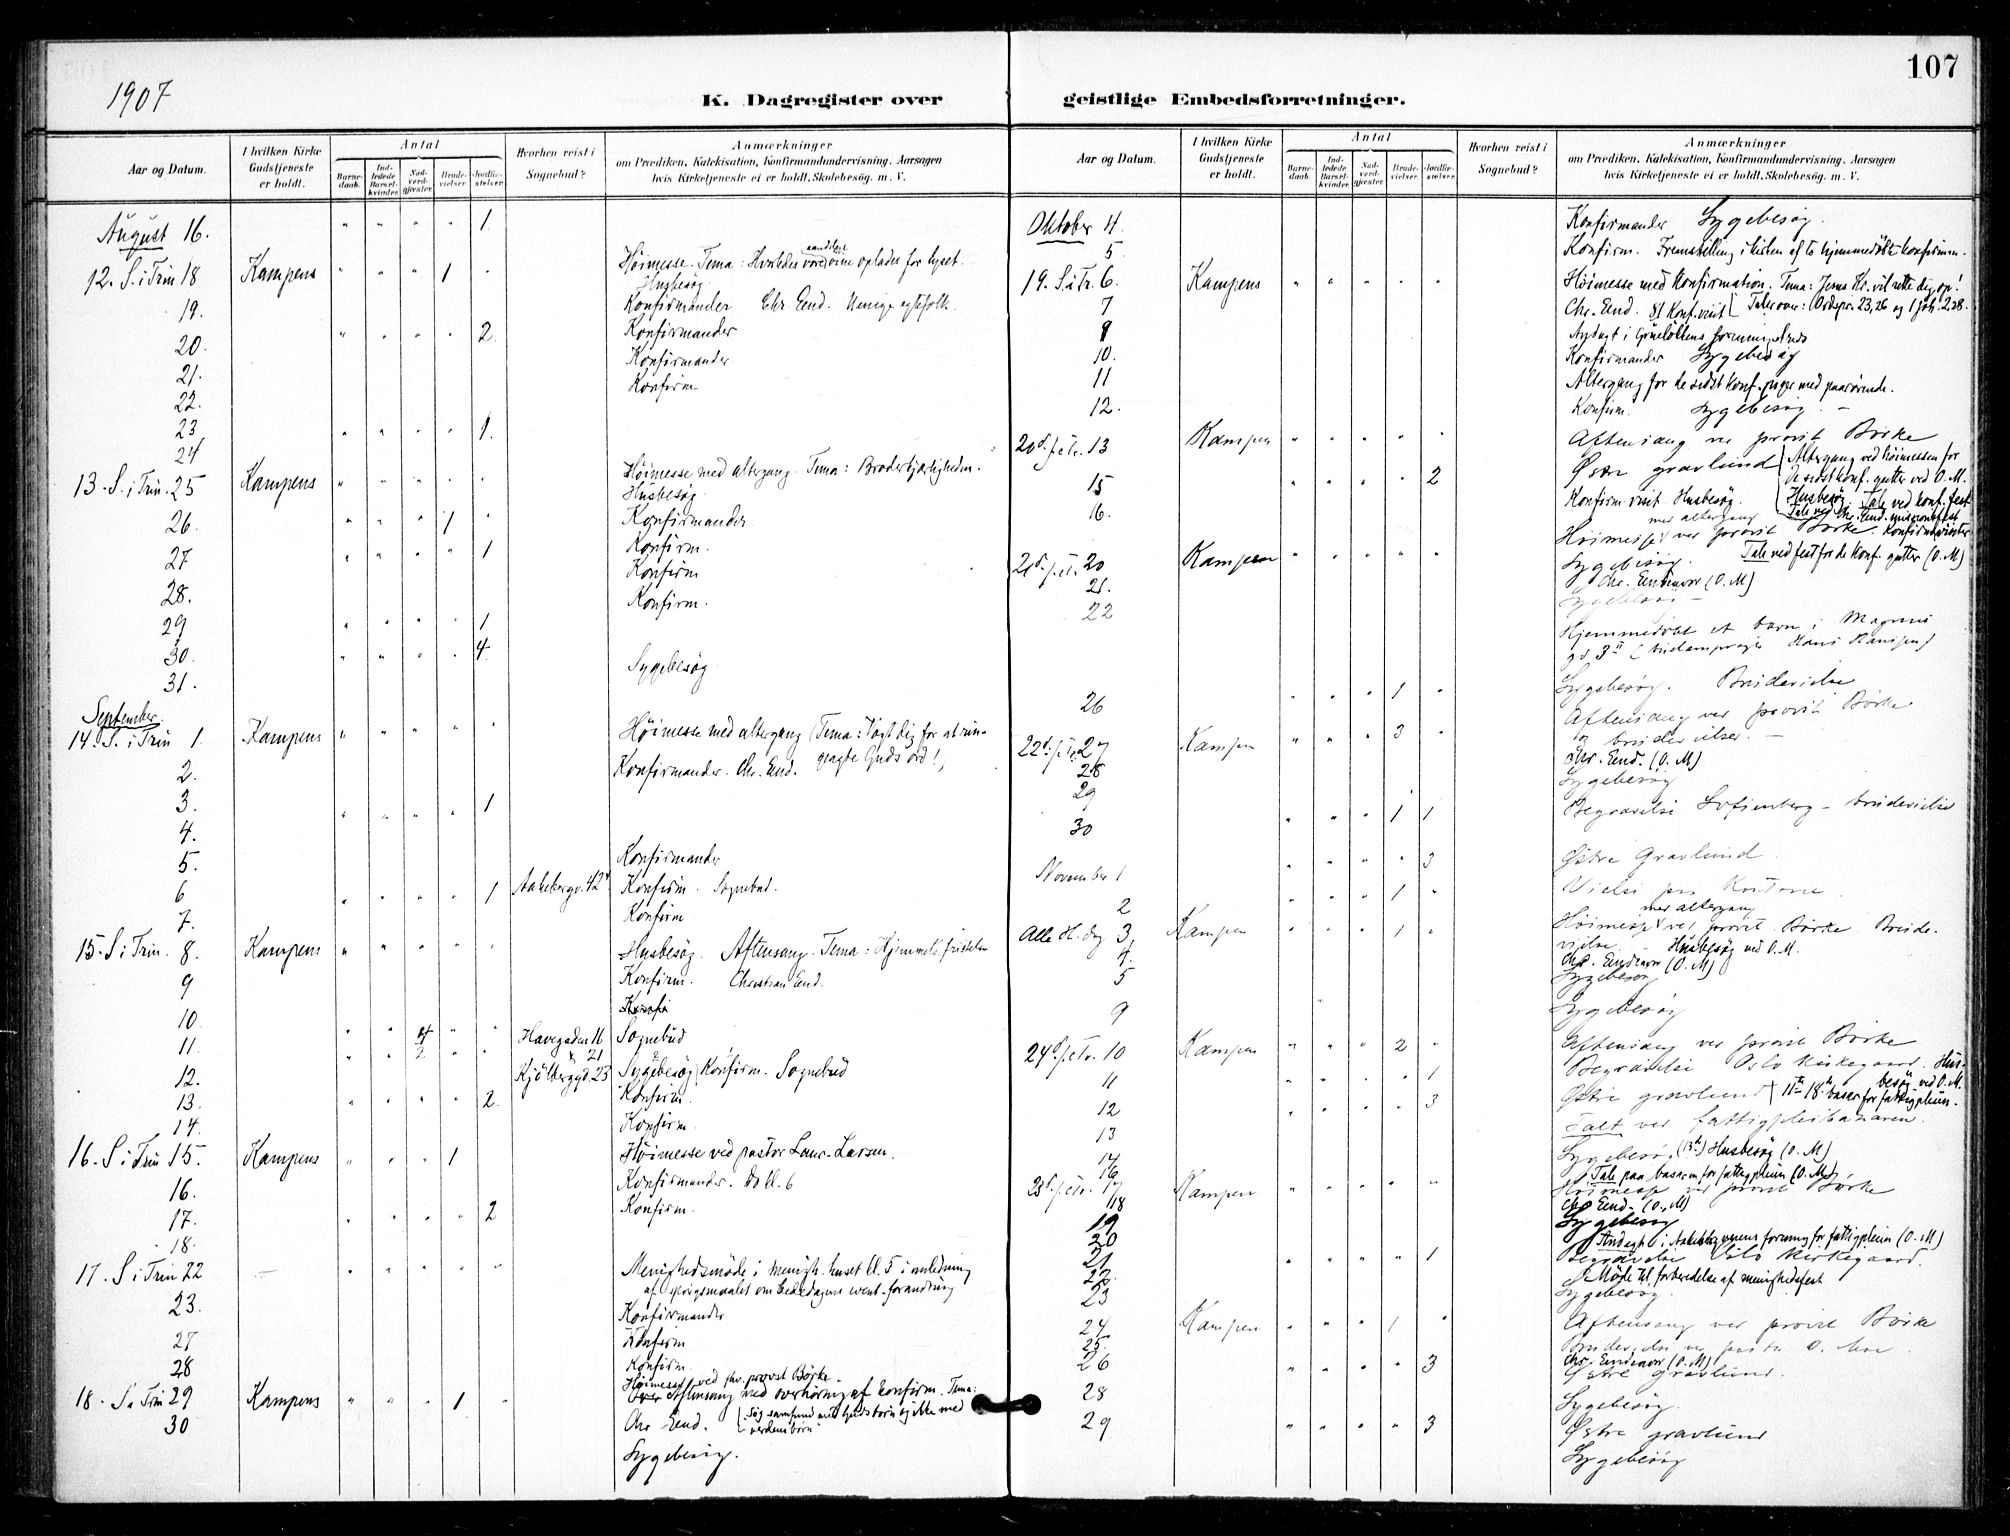 107
1907
K. Dagregister over geistlige Embedsforretninger.
Aar og Datum.
I hvilken Kirke Gudstjeneste er holdt.
Antal
Barnedaab.
Indledede Barselkvinder.
Nadverdgjæster.
Brudevielser.
Jordfæstelser.
Hvorhen reist i Sognebud?
Anmærkninger
om Prædiken, Katekisation, Konfirmandundervisning. Aarsagen
hvis Kirketjeneste ei er holdt. Skolebesøg. m. V.
August 16. " " " " 1.
12. S. i Trin 18 Kampens " " " 1 " Høimesse. Tema: Hvorledes vore aandelige øine oplades for lyset.
Husbesøg
19. Konfirmander Chr. Eend. Unenige egtefolk.
20. " " " " 2. Konfirmander
21. Konfirmander
22. Konfirm
23 " " " " 1.
24
13. S. i Trin. 25 Kampens " " " " " Høimesse med altergang. Tema: Broderkjærligheden.
Husbesøg
26. " " " 1 " Konfirmander
27 " " " " 1 Konfirm.
28. Konfirm
Konfirm.
29 " " " " 1
30. " " " " 4.
31. Sygebesøg
September
14. S. i Trin 1. Kampens " " " " " Høimesse med altergang (Tema: Vogt dig for at rin-
2. Konfirmander. Chr. Eend. geagte Guds ord!,
3. " " " " 1
4.
5. Konfirmander
6 " " " " 1 Aakebergv. 42 Konfirm. Sognebud.
7. Konfirm
15. S i Trin. 8. Kampens " " " " " Husbesøg. Aftensang. Tema: Hjemmets fristelser
9 Konfirm. Christian End.
10.
11. " " 4 " " Havegaden 16 Sognebud
" " 2 " " " 21
12. Kjølberggd. 23 Sygebesøg Konfirm. Sognebud
13. " " " " 2. Konfirm.
14. Konfirm.
16. S i Trin 15. Kampens " " " 1 Høimesse ved pastor Laur. Larsen.
16. Konfirmander. Do kl. 6
17. " " " " 2 Konfirm.
18.
17. S i Trin 22 — " " " " " Menighedsmøde i menigh. huset kl. 5 i anledning
23. af spørgsmaalet om Bededagens event. forandring
Konfirmander
27 Konfirm
28 Konfirm.
Høimesse ved provst Börke.
18. S i Trin 29 Kampens " " " 1 " Aftensang med overhøring af konfirm. Tema:
30 Chr. Eend. Søg samfund med Guds børn ej ikke med
verdens børn
Sygebesøg.
Oktober 4. Konfirmander Sygebesøg.
5. Konfirm. Fremstilling i kirken af to hjemmedøbte konfirmer.
19. S. i Tr. 6. Kampens " " " " " Høimesse med Konfirmation. Tema: Jesus Kr. vil rette dig op!
7 Chr. Eend. 81 Konf. visit Taler over: Ordspr. 23,26 og 1 Joh. 2,28.
9 Andagt i Grünerløkkens foreningslokale
10. Konfirmander Sygebesøg
11 Altergang for de sidst konf. piger med paarørende.
12. Konfirm. Sygebesøg. —
20 d. p. Tr. 13 Kampen " " " " " Aftensang ved provst Börke
15 " " " " 2 Østre gravlund Altergang ved höimessen for
de sidst konf. gutter ved O. M.
16. Konfirm. visit. Husbesøg. Husbesøg Tale ved konf. fest
Tale ved Chr. End.
med altergang
21 d. p. Tr. 20 Kampen " " " " " Høimesse ved provst Börke.
Sygebesøg. Tale ved fest for de konf. gutter (O. M)
21. Chr. Endeavor (O. M)
22 Sygebesøg —
Hjemmedøbt et barn i Magnus
gd 3 Hans Hansen)
26 " " " 1 " Sygebesøg. Brudevielse
22 d. p. Tr. 27 Kampen " " " 3 " Aftensang ved provst Börke
og brudevielser. —
28 Chr. Eend. (O. M)
29 Sygebesøg
30 " " " 1 1 Begravelse Sofienberg – brudevielse
November 1 " " " " 3 Østre Gravlund
2 " " " 1 " Vielse paa Kontoret.
med altergang
Alle H. dag 3. Kampen " " " 1 " Høimesse ved provst Börke Brude-
vielse. Husbesøg ved O. M.
4. Chr. Endeavor (O. M)
5 Sygebesøg
9 Sygebesøg
24 d. p. Tr. 10 Kampen " " " 2 " Aftensang ved provst Börke
11 " " " " 1 Begravelse Oslo Kirkegaard. Hus-
besøg ved O. M.
12 " " " " 3 Østre gravlund 11te–18 basar for fattigpleien.
13 Talt ved fattigpleibasaren.
14 Sygebesøg (13de) Husbesøg (O. M)
16 Tale paa basaren for fattigpleien (O. M)
25 d. p. Tr. 17 Kampen " " " " " Høimesse ved provst Börke
18 Chr. Eend. (O. M)
19 Sygebesøg
20 Andagt i Aakebergveiens forening for fattigpleien (O. M)
21 " " " " 1 Begravelse Oslo Kirkegaard.
22 Møde til forberedelse af menighedsfest
23 Sygebesøg.
24 Kampen " " " 1 " Aftensang ved provst Börke
25. Brudevielse ved pastor O. Moe
Chr. Endeavor (O. M)
26 " " " " 3 Østre Gravlund.
28 Sygebesøg.
29 " " " " 3 Østre gravlund
Sygebesøg